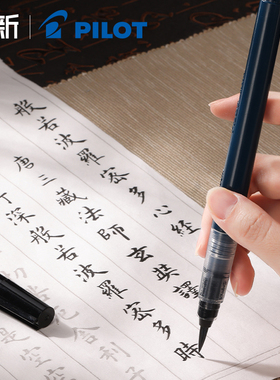 新 PILOT
般若波羅密多心經
唐三藏法師玄奘譯
深般若波羅密多時
舍利子
是空空